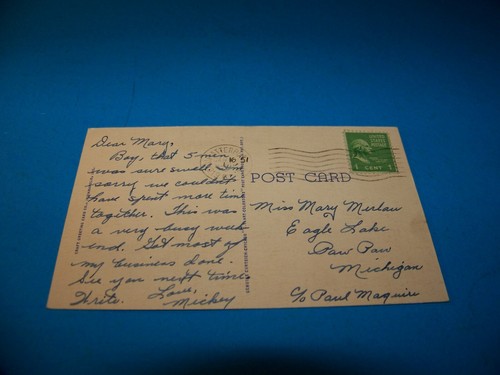 Dear Mary,
Boy, that 5 min
was sure swell. I'm
sorry we couldn't
have spent more time
together. This was
a very busy week
end. Got most of
my business done.
See you next time.
Write. Love,
Mickey
10 51
POST CARD
1 CENT 1
Miss Mary
Eagle Lake
Paw Paw
Michigan
c/o Paul Maguire